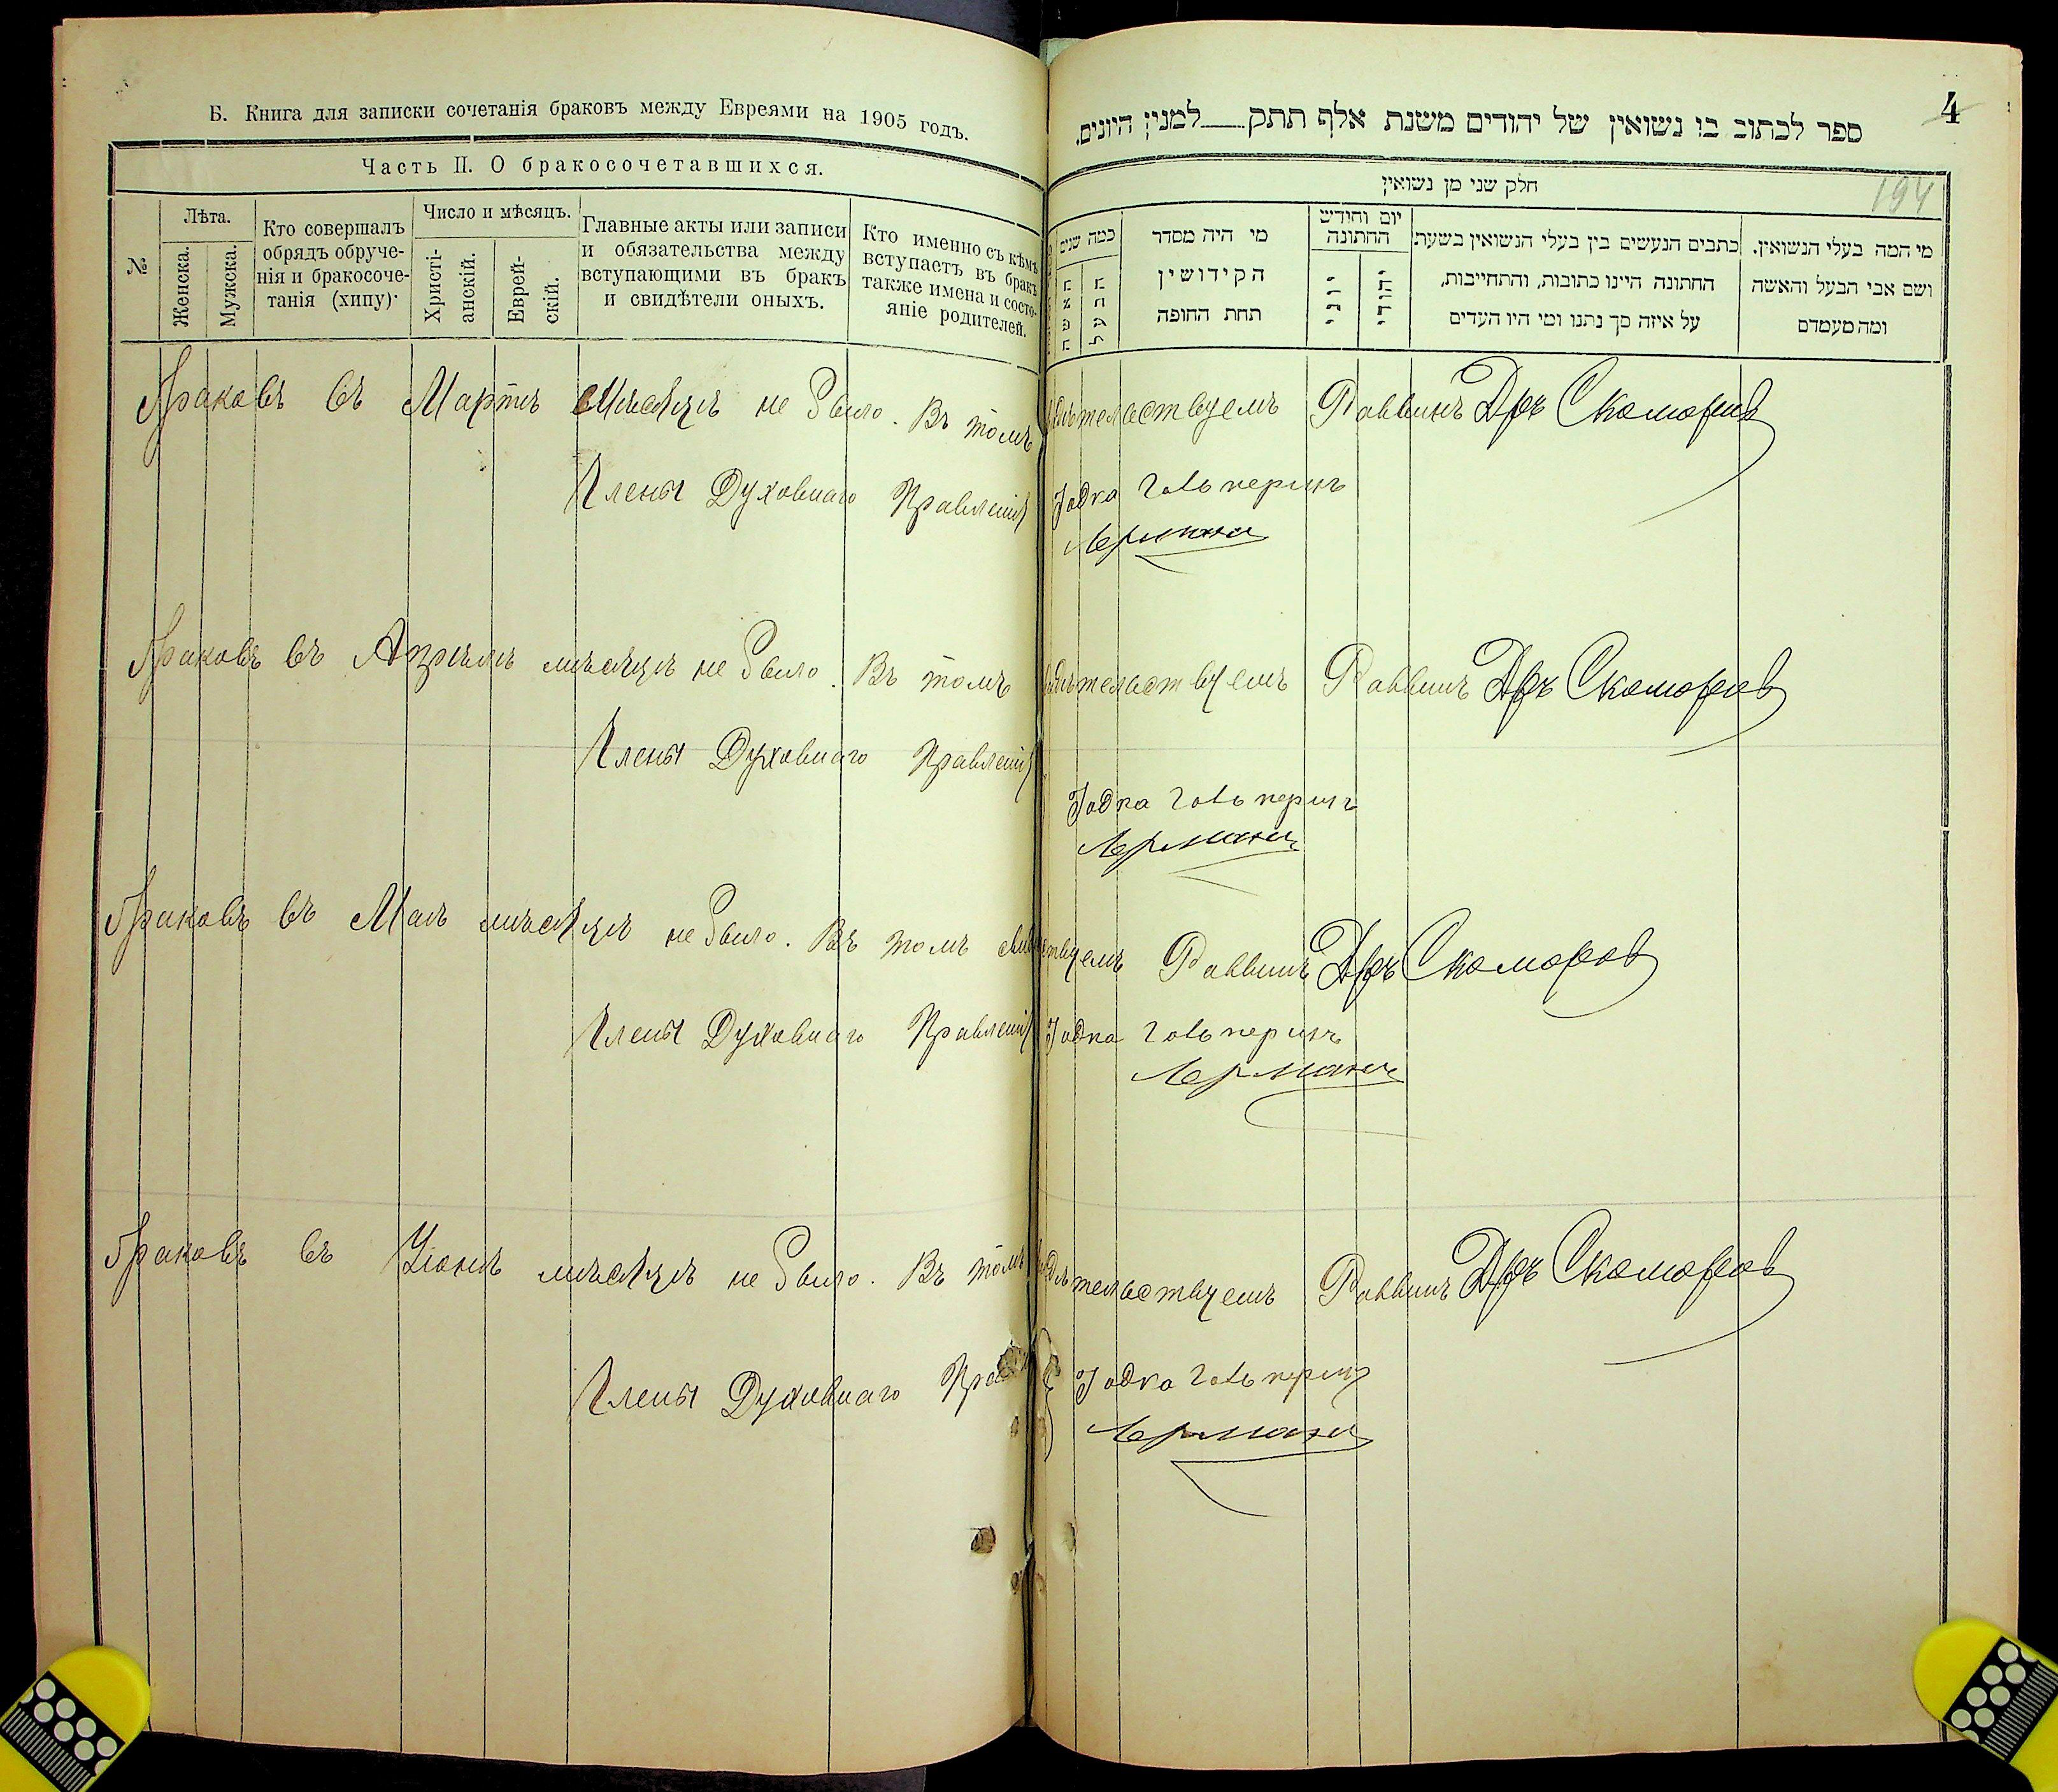 Б. Книга для записки сочетанія браковъ между Евреями на 1905 годъ.
Часть II. О бракосочетавшихся.
№
Лѣта.
Женска.
Мужска.
Кто совершалъ
обрядъ обруче-
нія и бракосоче-
танія (хипу)·
Число и мѣсяцъ.
Христі-
анскій.
Еврей-
скій.
Главные акты или записи
и обязательства между
вступающими въ бракъ
и свидѣтели оныхъ.
Кто именно съ кѣмъ
вступаетъ въ бракъ
также имена и состо-
яніе родителей.
4
194
ספר לכתוב בו נשואין של יהודים משנת אלף תתק למנין היונים.
חלק שני מן נשואין
כמה שנים
האשה
הבעל
מי היה מסדר
הקידושין
תחת החופה
יום וחידש
החתונה
יוני
יהודי
כתבים הנעשים בין בעלי הנשואין בשעת
החתונה היינו כתובות, והתחייבות,
על איזה סך נתנו ומי היו העדים
מי המה בעלי הנשואין.
ושם אבי הבעל והאשה
ומה מעמדם
Браковъ въ Мартѣ мѣсяцѣ не было. Въ томъ свидѣтельствуемъ Раввинъ Дръ Скоморов
Члены Духовнаго Правленія
Іодка Гольперинъ
Браковъ въ Апрѣлѣ мѣсяцѣ не было. Въ томъ свидѣтельствуемъ Раввинъ Дръ Скоморов
Члены Духовнаго Правленія
Іодка Гольперинъ
Браковъ въ Маѣ мѣсяцѣ не было. Въ томъ свидѣтельствуемъ Раввинъ Дръ Скоморов
Члены Духовнаго Правленія Іодка Гольперинъ
Браковъ въ Іюнѣ мѣсяцѣ не было. Въ томъ свидѣтельствуемъ Раввинъ Дръ Скоморов
Члены Духовнаго Іодка Гольперин